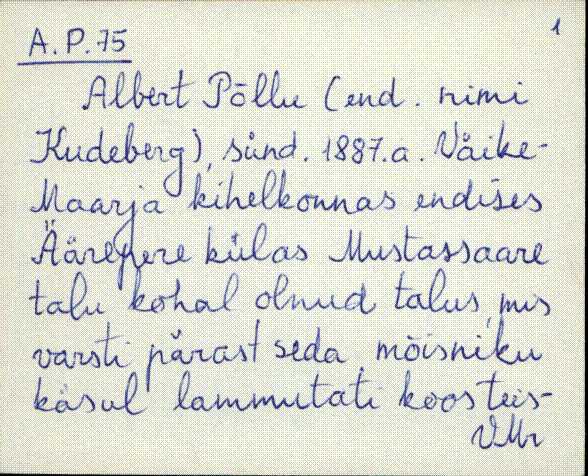 1
A.P.75
Albert Põllu (end. nimi
Kudeberg), sünd. 1887.a. Väike-
Maarja kihelkonnas endises
Äärepere külas Mustassaare
talu kohal olnud talus, mis
varsti pärast seda mõisniku
käsul lammutati koos teis-
VMr